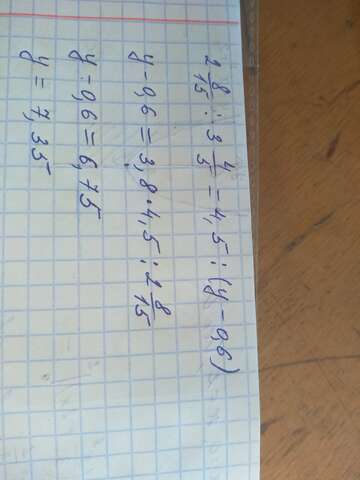 2 8/15 : 3 4/5 = 4,5 : (y - 0,6)
y - 0,6 = 3,8 · 4,5 : 2 8/15
y - 0,6 = 6,75
y = 7,35